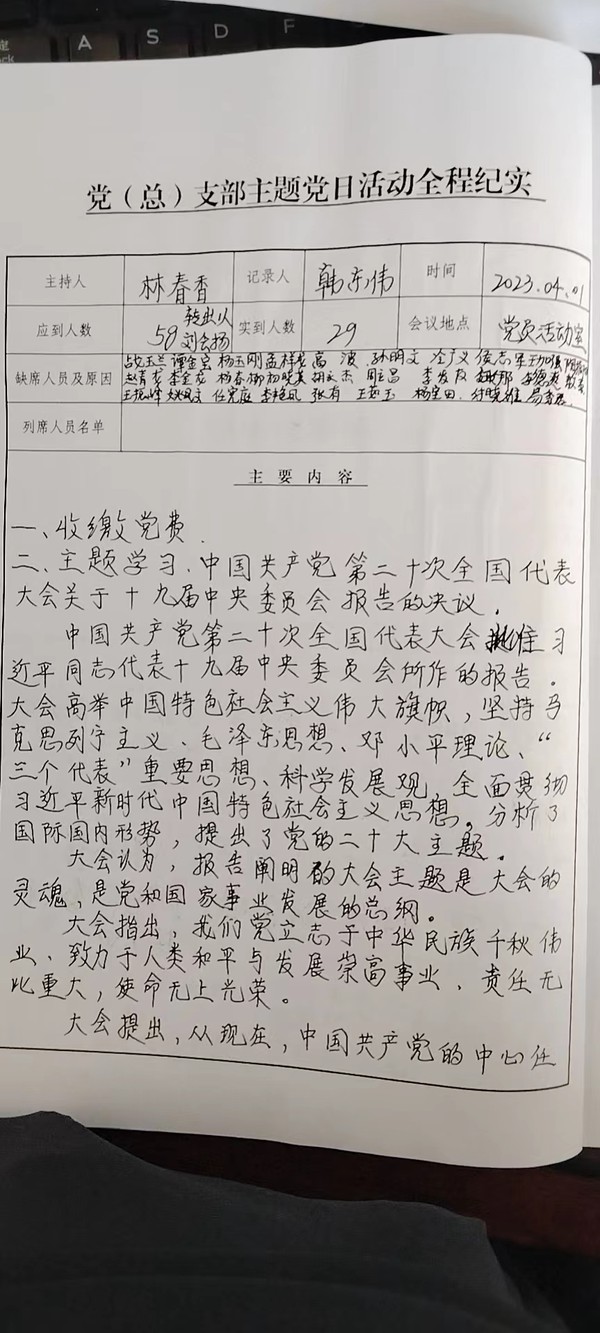 A S D F
党（总）支部主题党日活动全程纪实
主持人 林春香 记录人 韩东伟 时间 2023.04.01
应到人数 58 转出1人 刘会扬 实到人数 29 会议地点 党员活动室
缺席人员及原因 杨玉刚 孟祥龙 高波 孙明文
李金龙 杨春柳 胡文杰 李发友
任家庭 李艳凤 张有
列席人员名单
主要内容
一、收缴党费.
二、主题学习.中国共产党第二十次全国代表
大会关于十九届中央委员会报告的决议.
中国共产党第二十次全国代表大会批准习
近平同志代表十九届中央委员会所作的报告。
大会高举中国特色社会主义伟大旗帜，坚持马
克思列宁主义、毛泽东思想、邓小平理论、“
三个代表”重要思想、科学发展观，全面贯彻
习近平新时代中国特色社会主义思想。分析了
国际国内形势，提出了党的二十大主题。
大会认为，报告阐明的大会主题是大会的
灵魂，是党和国家事业发展的总纲。
大会指出，我们党立志于中华民族千秋伟
业、致力于人类和平与发展崇高事业、责任无
比重大，使命无上光荣。
大会提出，从现在，中国共产党的中心任